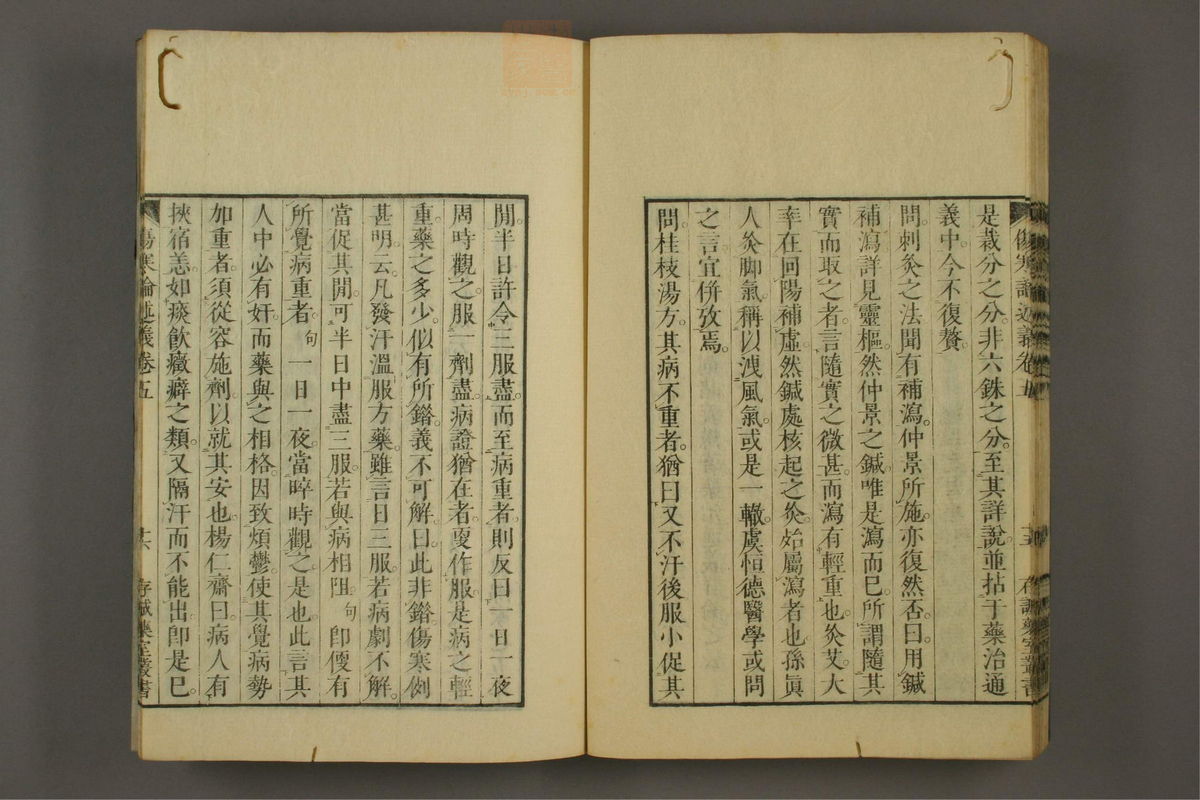 傷寒論述義卷五
十五
存誠藥室叢書
是裁分之分。非六銖之分。至其詳說。並拈于藥治通
義中。今不復贅。
問。刺灸之法。聞有補瀉。仲景所施。亦復然否。曰。用鍼
補瀉。詳見靈樞。然仲景之鍼。唯是瀉而已。所謂隨其
實而取之者。言隨實之微甚。而瀉有輕重也。灸艾。大
率在回陽補虛。然鍼處核起之灸。始屬瀉者也。孫眞
人灸脚氣。稱以洩風氣。或是一轍。虞恒德醫學或問
之言。宜併攷焉。
問。桂枝湯方。其病不重者。猶曰又不汗後服小促其
閒。半日許令三服盡。而至病重者。則反曰一日一夜
周時觀之。服一劑盡。病證猶在者。更作服。是病之輕
重。藥之多少。似有所錯。義不可解。曰。此非錯。傷寒例
甚明。云。凡發汗溫服方藥。雖言日三服。若病劇不解。
當促其閒。可半日中盡三服。若與病相阻。句卽便有
所覺。病重者。句一日一夜。當晬時觀之。是也。此言其
人中必有奸。而藥與之相格。因致煩鬱。使其覺病勢
如重者。須從容施劑。以就其安也。楊仁齋曰。病人有
挾宿恙。如痰飮癥癖之類。又隔汗而不能出。卽是已。
傷寒論述義卷五
十六
存誠藥室叢書